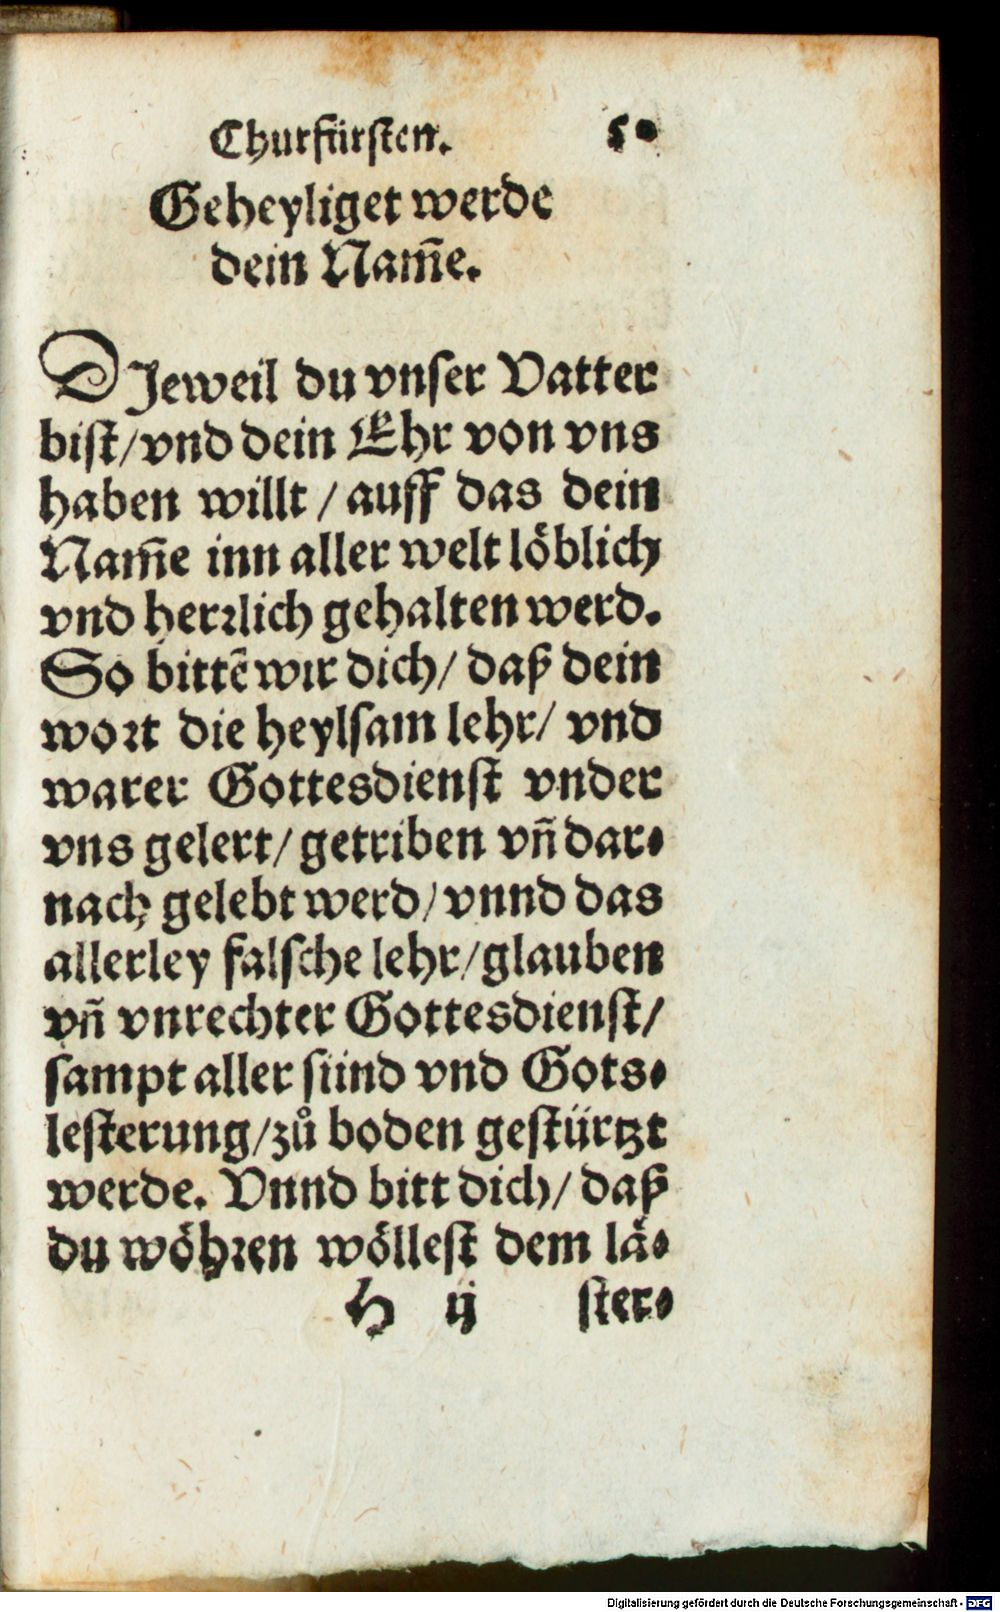 Churfürsten. 50
Geheyliget werde
dein Nam̄e.
DJeweil du vnser Vatter
bist/vnd dein Ehr von vns
haben willt / auff das dein
Nam̄e inn aller welt löblich
vnd herꝛlich gehalten werd.
So bittẽ wir dich/ daß dein
woꝛt die heylsam lehr/ vnd
warer Gottesdienst vnder
vns gelert/ getriben vñ dar⸗
nach gelebt werd/ vnnd das
allerley falsche lehr/glauben
vñ vnrechter Gottesdienst/
sampt aller sünd vnd Gots⸗
lesterung/zů boden gestürtzt
werde. Vnnd bitt dich/ daß
du wöhꝛen wöllest dem lä⸗
H ij ster⸗
Digitalisierung gefördert durch die Deutsche Forschungsgemeinschaft - DFG